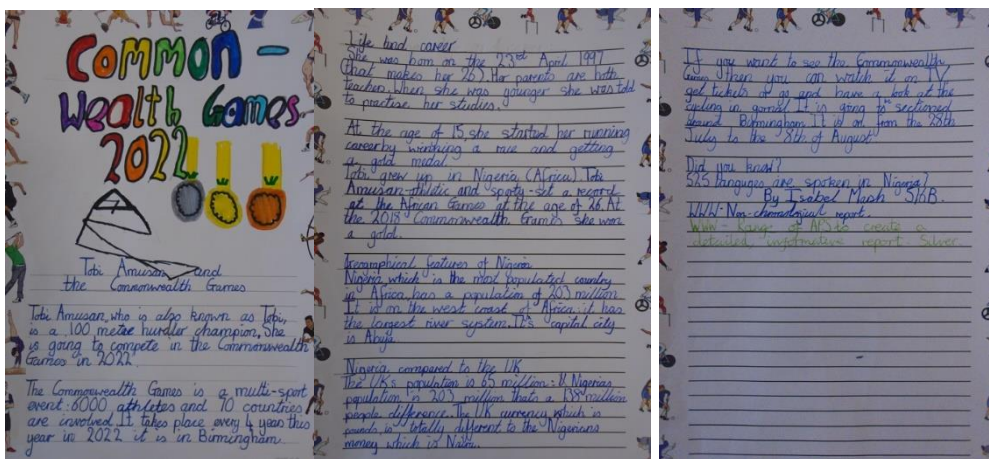 Common-
Wealth Games
2022
Tobi Amusan and
the Commonwealth Games
Tobi Amusan, who is also known as Tobi,
is a 100 metre hurdler champion. She
is going to compete in the Commonwealth
Games in 2022.
The Commonwealth Games is a multi-sport
event: 6000 athletes and 70 countries
are involved. It takes place every 4 year this
year in 2022 it is in Birmingham.
Life and career
She was born on the 23rd April 1997
that makes her 263. Her parents are both
teacher. When she was younger she was told
to practise her studies.
At the age of 15 she started her running
career by a race and getting
a gold medal.
Tobi grew up in Nigeria (Africa). Tobi
Amusan-athletic and sporty-set a record
at the African Games at the age of 26. At
the 2018 Commonwealth Games she won
a gold.
Geographical features of Nigeria
Nigeria which is the most populated country
in Africa has a population of 203 million
It is on the west coast of Africa it has
the largest river system. It's capital city
is Abuja
Nigeria compared to the UK
The UK's population is 65 million: Nigerias
population is 203 million thats a 139 million
people difference. The UK currency which is
pounds is totally different to the Nigerians
money which is Naira.
If you want to see the Commonwealth
Games then you can watch it on TV,
get tickets or go and have a look at the
cycling in gornal. It is going to sectioned
around Birmingham. It is on from the 28th
July to the 8th of August
Did you know?
525 languges are spoken in Nigeria?
By Isabel Mash 5KB.
WWW-Non-chronological report.
WWW- Range of AFS to create a
detailed, informative report. Silver